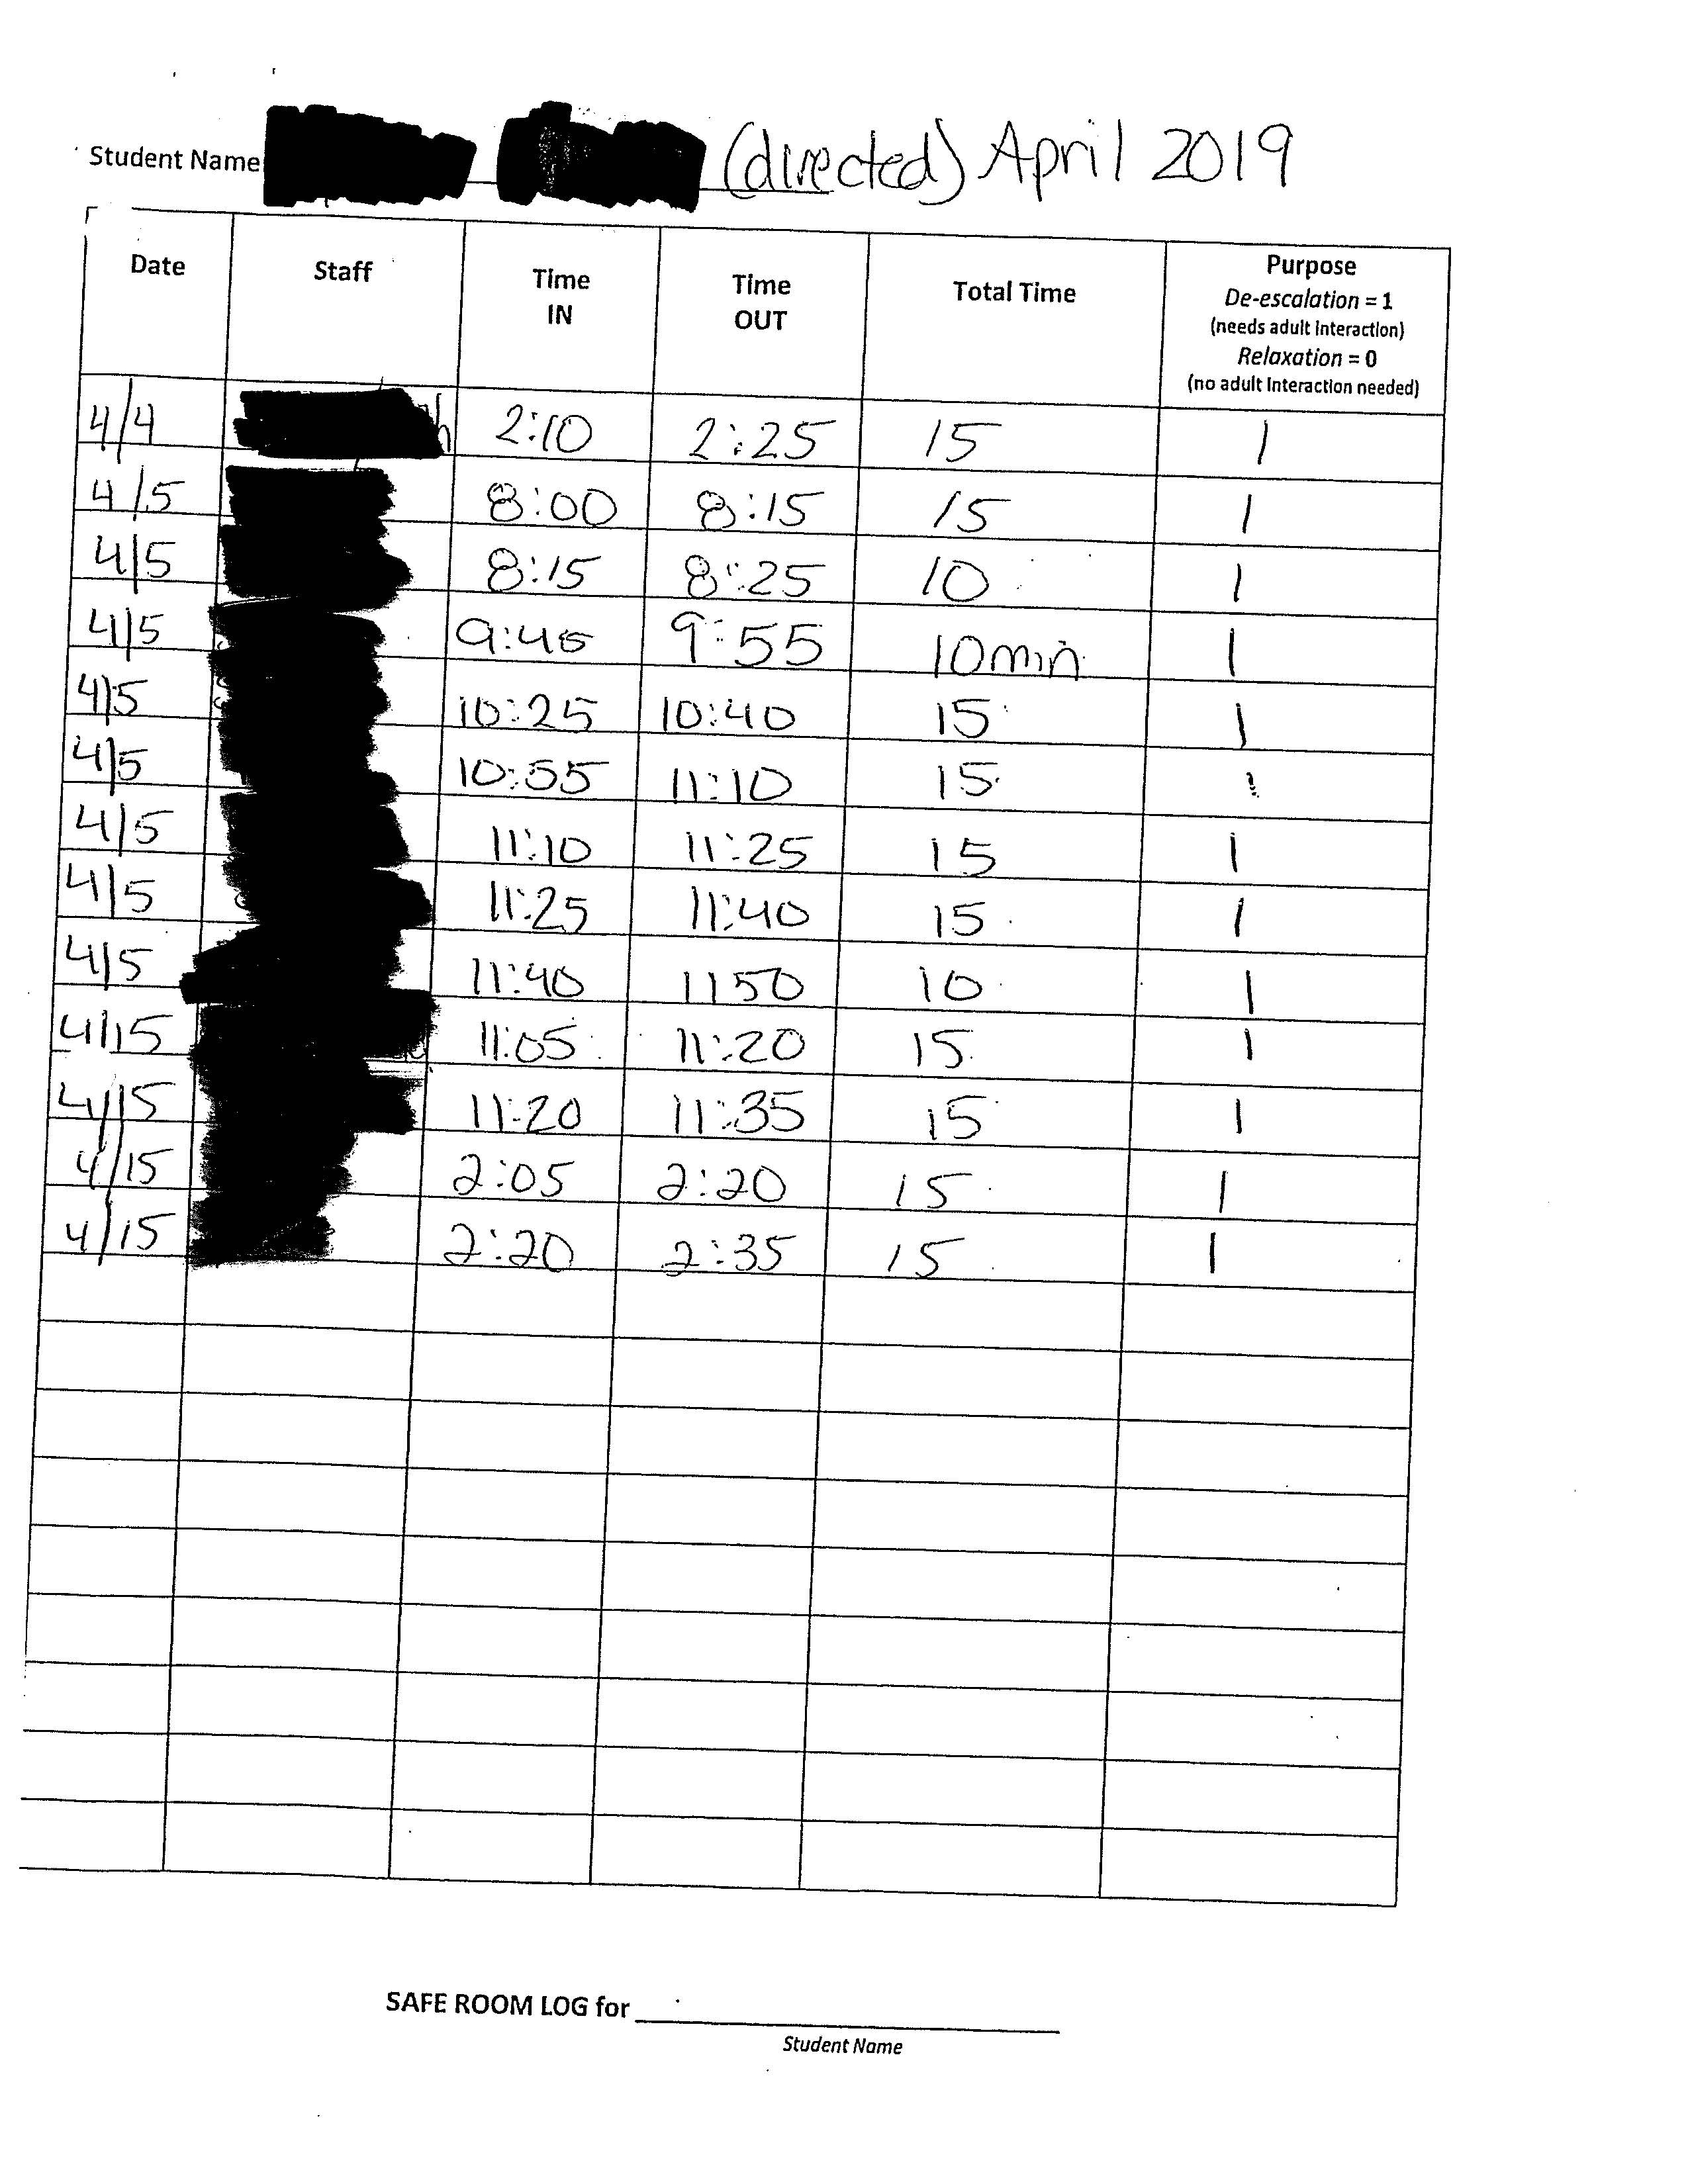 Student Name (directed) April 2019
Date Staff Time IN Time OUT Total Time Purpose
De-escalation = 1
(needs adult interaction)
Relaxation = 0
(no adult interaction needed)
4/4 2:10 2:25 15 1
4/5 8:00 8:15 15 1
4/5 8:15 8:25 10 1
4/5 9:45 9:55 10min 1
4/5 10:25 10:40 15 1
4/5 10:55 11:10 15 1
4/5 11:10 11:25 15 1
4/5 11:25 11:40 15 1
4/5 11:40 1150 10 1
4/15 11:05 11:20 15 1
4/15 11:20 11:35 15 1
4/15 2:05 2:20 15 1
4/15 2:20 2:35 15 1
SAFE ROOM LOG for
Student Name